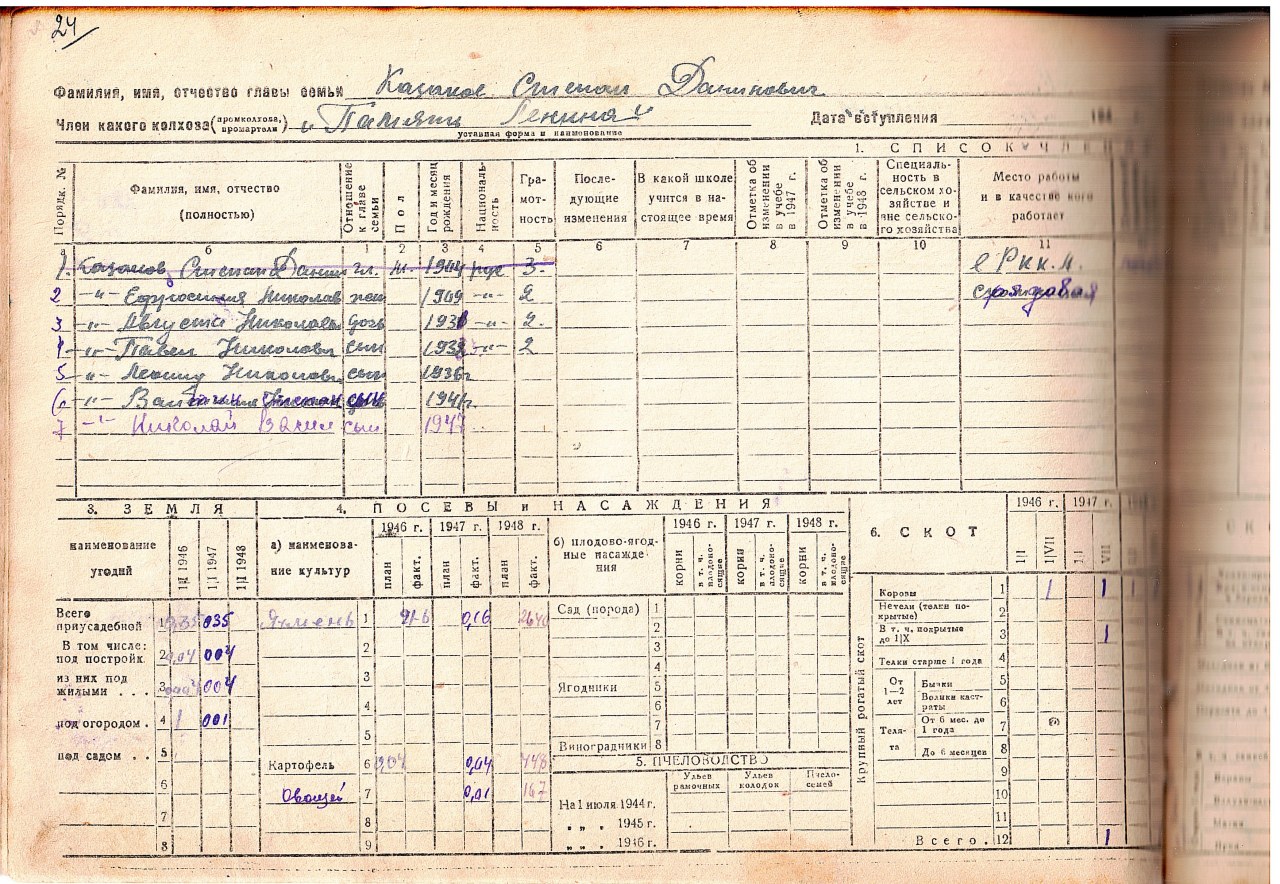 24
Фамилия, имя, отчество главы семьи Казаков Степан Данилович
Член какого колхоза (промколхоза, промартели) „Памяти Ленина"
уставная форма и наименование
Дата вступления 194
1. СПИСОК ЧЛЕН
Порядк. №
Фамилия, имя, отчество (полностью)
Отношение к главе семьи
Пол
Год и месяц рождения
Националь-ность
Гра-мот-ность
После-дующие изменения
В какой школе учится в на-стоящее время
Отметка об изменении в учебе в 1947 г.
Отметка об изменении в учебе в 1948 г.
Специаль-ность в сельском хо-зяйстве и вне сельско-го хозяйства
Место работы и в качестве кого работает
а б 1 2 3 4 5 6 7 8 9 10 11
1. Казаков Степан Данил гл. м. 1904 рус 3. РККА.
2 -"- Ефросиния Николав жен 1909 -"- 2 рядовая
3 -"- Августа Николавн дочь -"- 2.
4 -"- Павел Николавич сын -"- 2
5 -"- Леонид Николавич сын 1936г
6 -"- сын 1941г.
7 -"- Николай сын 1947
3. ЗЕМЛЯ
наименование угодий
1|I 1946 1|I 1947 1|I 1948
Всего приусадебной 1 0,35 035
В том числе: под постройк. 2 0,04 004
из них под жилыми . . . 3 004
под огородом . 4 001
под садом . . 5
6
7
8
4. ПОСЕВЫ и НАСАЖДЕНИЯ
а) наименова-ние культур
1946 г. 1947 г. 1948 г.
план факт. план факт. план факт.
Ячмень 1 0,16
2
3
4
5
Картофель 6 0,04 0,04
Овощей 7 0,01 167
8
9
б) плодово-ягод-ные насажде-ния
1946 г. 1947 г. 1948 г.
корни в т. ч. плодоно-сящие корни в т. ч. плодоно-сящие корни в т. ч. плодоно-сящие
Сад (порода) 1
2
3
4
Ягодники 5
6
7
Виноградники 8
5. ПЧЕЛОВОДСТВО
Ульев рамочных Ульев колодок Пчело-семей
На 1 июля 1944 г.
„ „ „ 1945 г.
„ „ „ 1946 г.
6. СКОТ
1946 г. 1947 г.
1|I 1|VII 1|I VII
Крупный рогатый скот
Коровы 1 1 1
Нетели (телки по-крытые) 2
В т. ч. покрытые до 1|IX 3 1
Телки старше 1 года 4
От 1—2 лет
Бычки 5
Волики каст-раты 6
Теля-та
От 6 мес. до 1 года 7
До 6 месяцев 8
9
10
11
Всего . 12 1